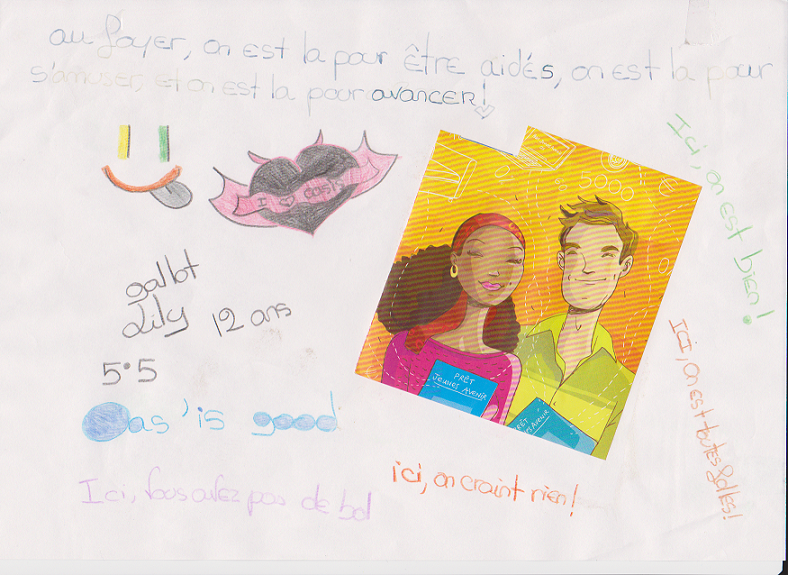 au foyer, on est là pour être aidés, on est là pour
s'amuser, et on est là pour avancer!
I oasis
gallot
Lily 12 ans
5°5
Oas'is good
Ici, vous avez pas de bol
ici, on craint rien!
Ici, on est bien!
ICI, on est toutes folles!
5000
PRÊT
JEUNES AVENIR
PRÊT
ES AVENIR